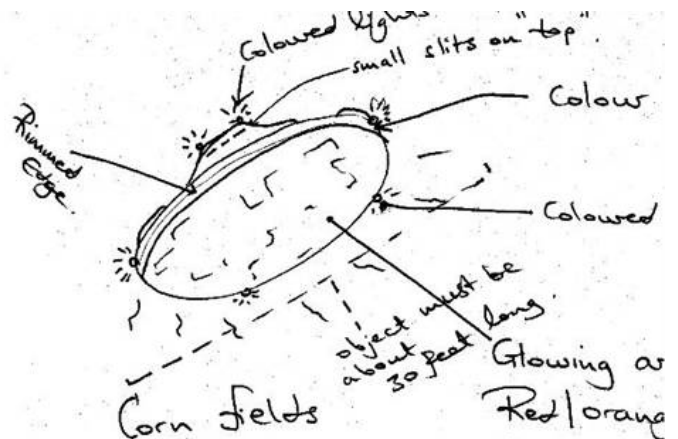 Coloured lights
small slits on "top".
Colour
Rimmed
Edge.
Coloured
object must be
about
30 feet long.
Glowing
Red/orang
Corn fields